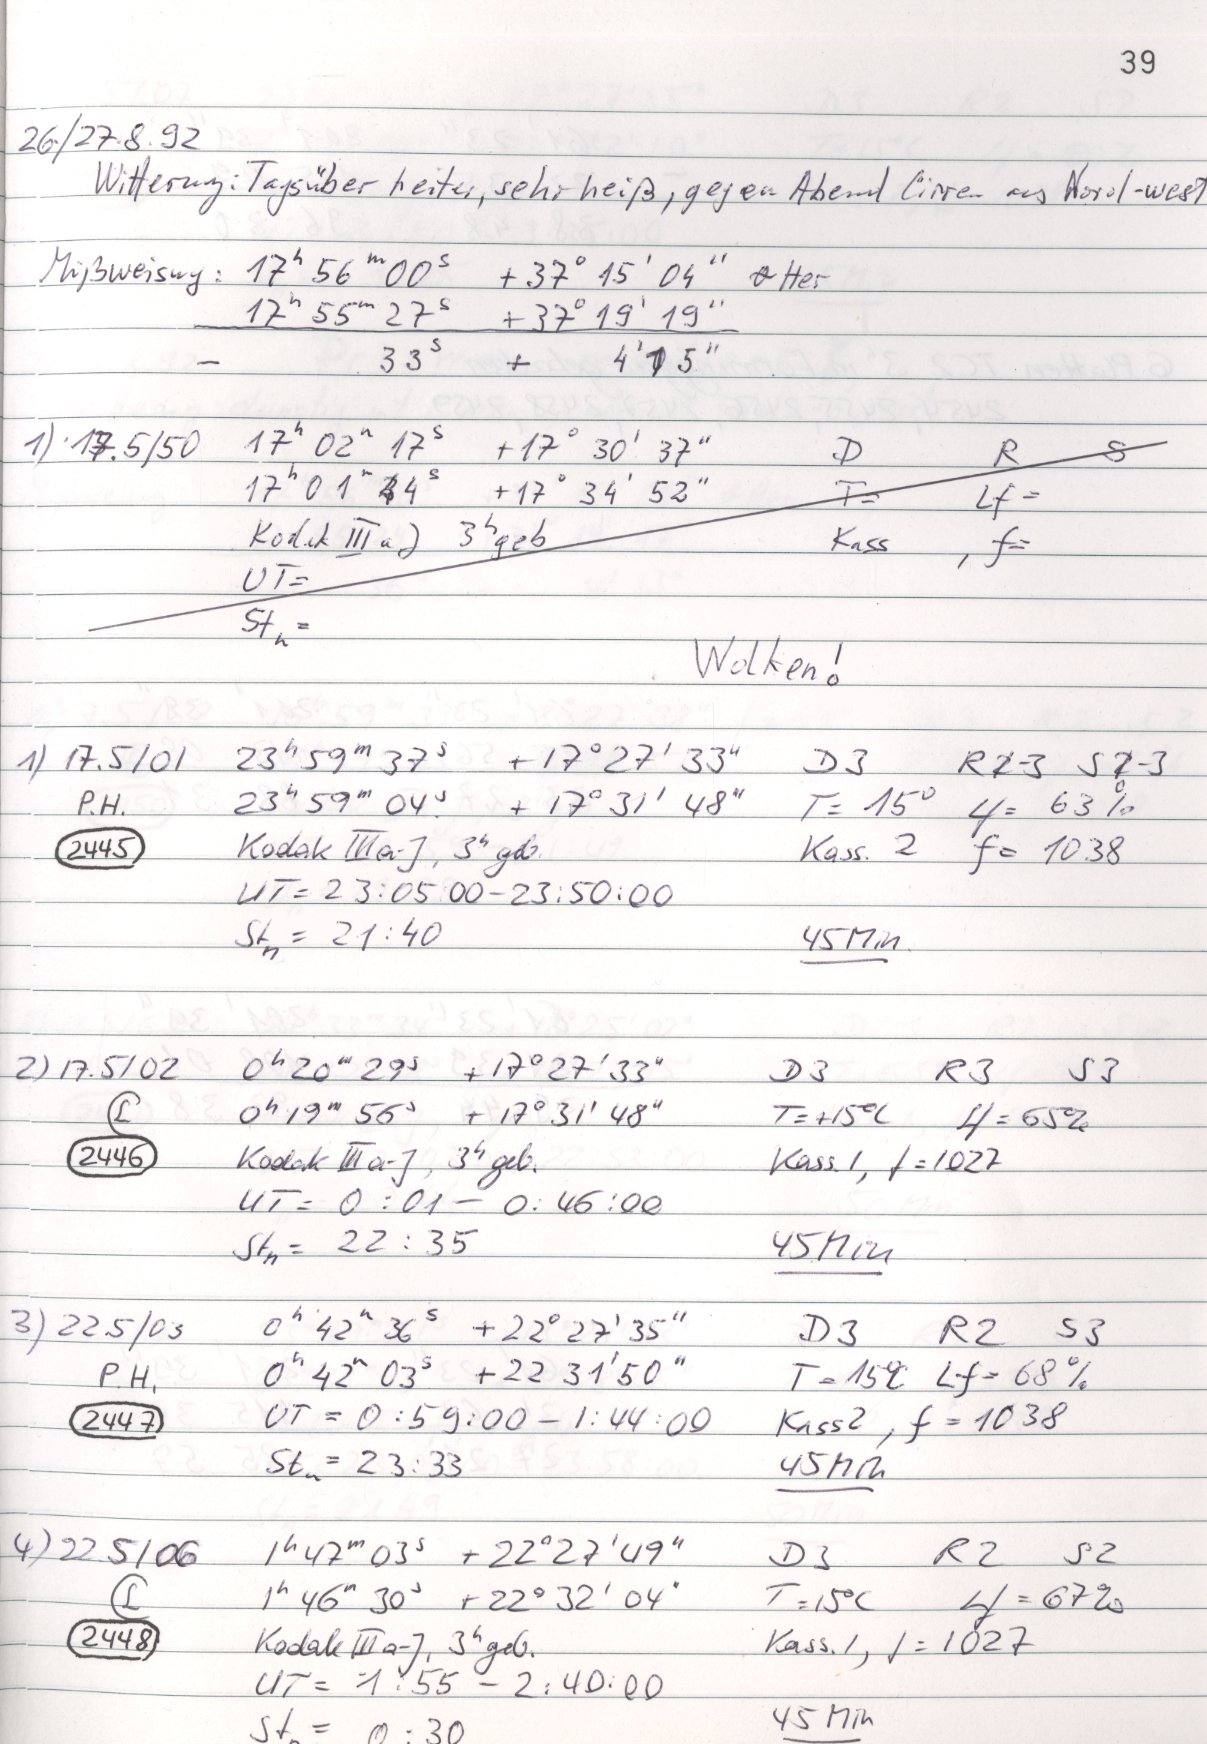 39
26./27.8.92
Witterung: Tagsüber heiter, sehr heiß, gegen Abend Cirren aus Nord-west
Mißweisung: 17h 56m 00s + 37° 15' 04" Her
17h 55m 27s + 37° 19' 19"
- 33s + 4' 15"
1) 17.5/50 17h 02m 17s + 17° 30' 37" D R S
17h 01m 44s + 17° 34' 52" T= Lf=
Kodak IIIaJ 3h geb Kass , f=
UT=
Stn =
Wolken!
1) 17.5/01 23h 59m 37s + 17° 27' 33" D3 R2-3 S2-3
P.H. 23h 59m 04s + 17° 31' 48" T= 15° Lf= 63%
2445 Kodak IIIa-J, 3h geb. Kass. 2 f= 1038
UT= 23:05:00-23:50:00
Stn = 21:40 45 Min.
2) 17.5/02 0h 20m 29s + 17° 27' 33" D3 R3 S3
0h 19m 56s + 17° 31' 48" T=+15°C Lf=65%
2446 Kodak IIIa-J, 3h geb. Kass. 1, f=1027
UT= 0:01 - 0:46:00
Stn = 22:35 45 Min
3) 22.5/03 0h 42m 36s + 22° 27' 35" D3 R2 S3
P.H. 0h 42m 03s + 22 31' 50" T=15°C Lf= 68%
2447 UT = 0:59:00 - 1:44:00 Kass 2, f = 1038
Stn = 23:33 45 Min
4) 22.5/06 1h 47m 03s + 22° 27' 49" D3 R2 S2
1h 46m 30s + 22° 32' 04" T=15°C Lf=67%
2448 Kodak IIIa-J, 3h geb. Kass. 1, f=1027
UT= 1:55 - 2:40:00
Stn = 0:30 45 Min